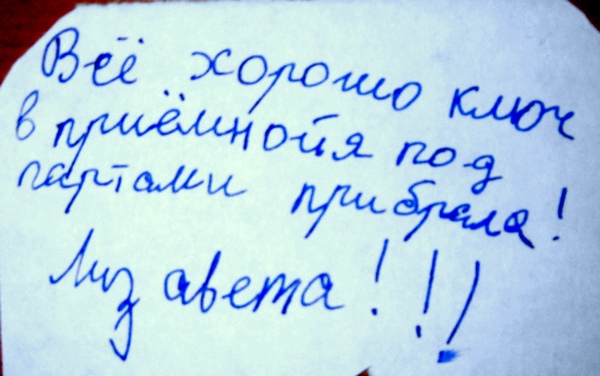 Всё хорошо ключ
в приёмнойя под
партами прибрала!
Лизавета!!!